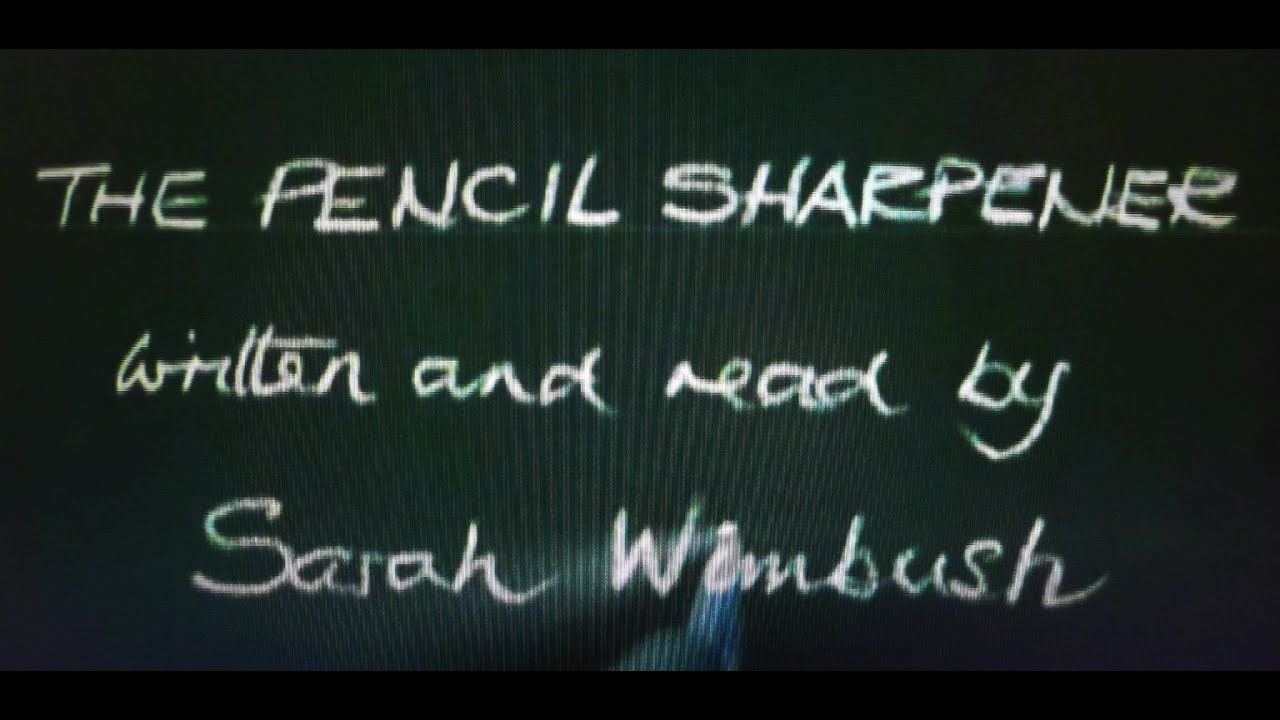 THE PENCIL SHARPENER
written and read by
Sarah Wimbush